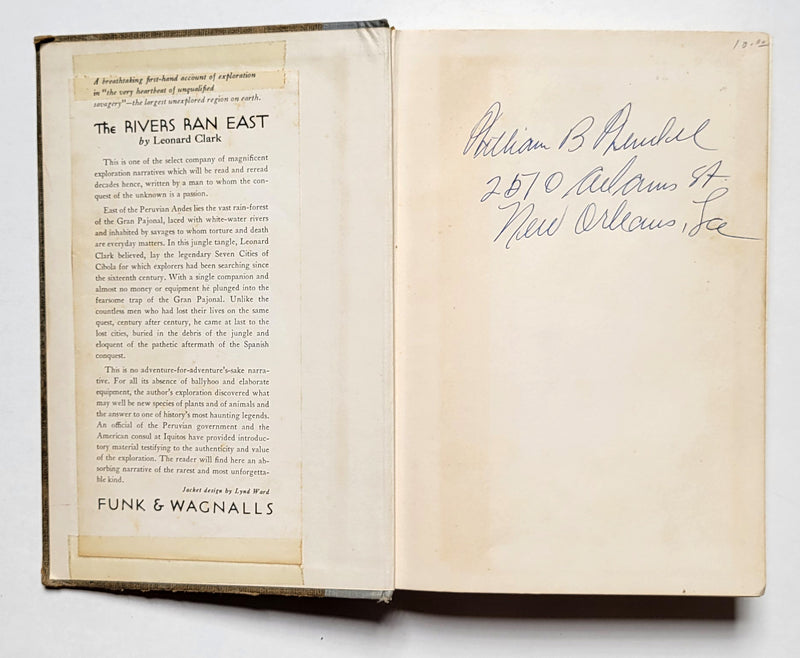 A breathtaking first-hand account of exploration
in "the very heartbeat of unqualified
savagery"—the largest unexplored region on earth.
The RIVERS RAN EAST
by Leonard Clark
This is one of the select company of magnificent
exploration narratives which will be read and reread
decades hence, written by a man to whom the con-
quest of the unknown is a passion.
East of the Peruvian Andes lies the vast rain-forest
of the Gran Pajonal, laced with white-water rivers
and inhabited by savages to whom torture and death
are everyday matters. In this jungle tangle, Leonard
Clark believed, lay the legendary Seven Cities of
Cibola for which explorers had been searching since
the sixteenth century. With a single companion and
almost no money or equipment he plunged into the
fearsome trap of the Gran Pajonal. Unlike the
countless men who had lost their lives on the same
quest, century after century, he came at last to the
lost cities, buried in the debris of the jungle and
eloquent of the pathetic aftermath of the Spanish
conquest.
This is no adventure-for-adventure's-sake narra-
tive. For all its absence of ballyhoo and elaborate
equipment, the author's exploration discovered what
may well be new species of plants and of animals and
the answer to one of history's most haunting legends.
An official of the Peruvian government and the
American consul at Iquitos have provided introduc-
tory material testifying to the authenticity and value
of the exploration. The reader will find here an ab-
sorbing narrative of the rarest and most unforgetta-
ble kind.
Jacket design by Lynd Ward
FUNK & WAGNALLS
10.00
William B
2510 Adams St.
New Orleans, La